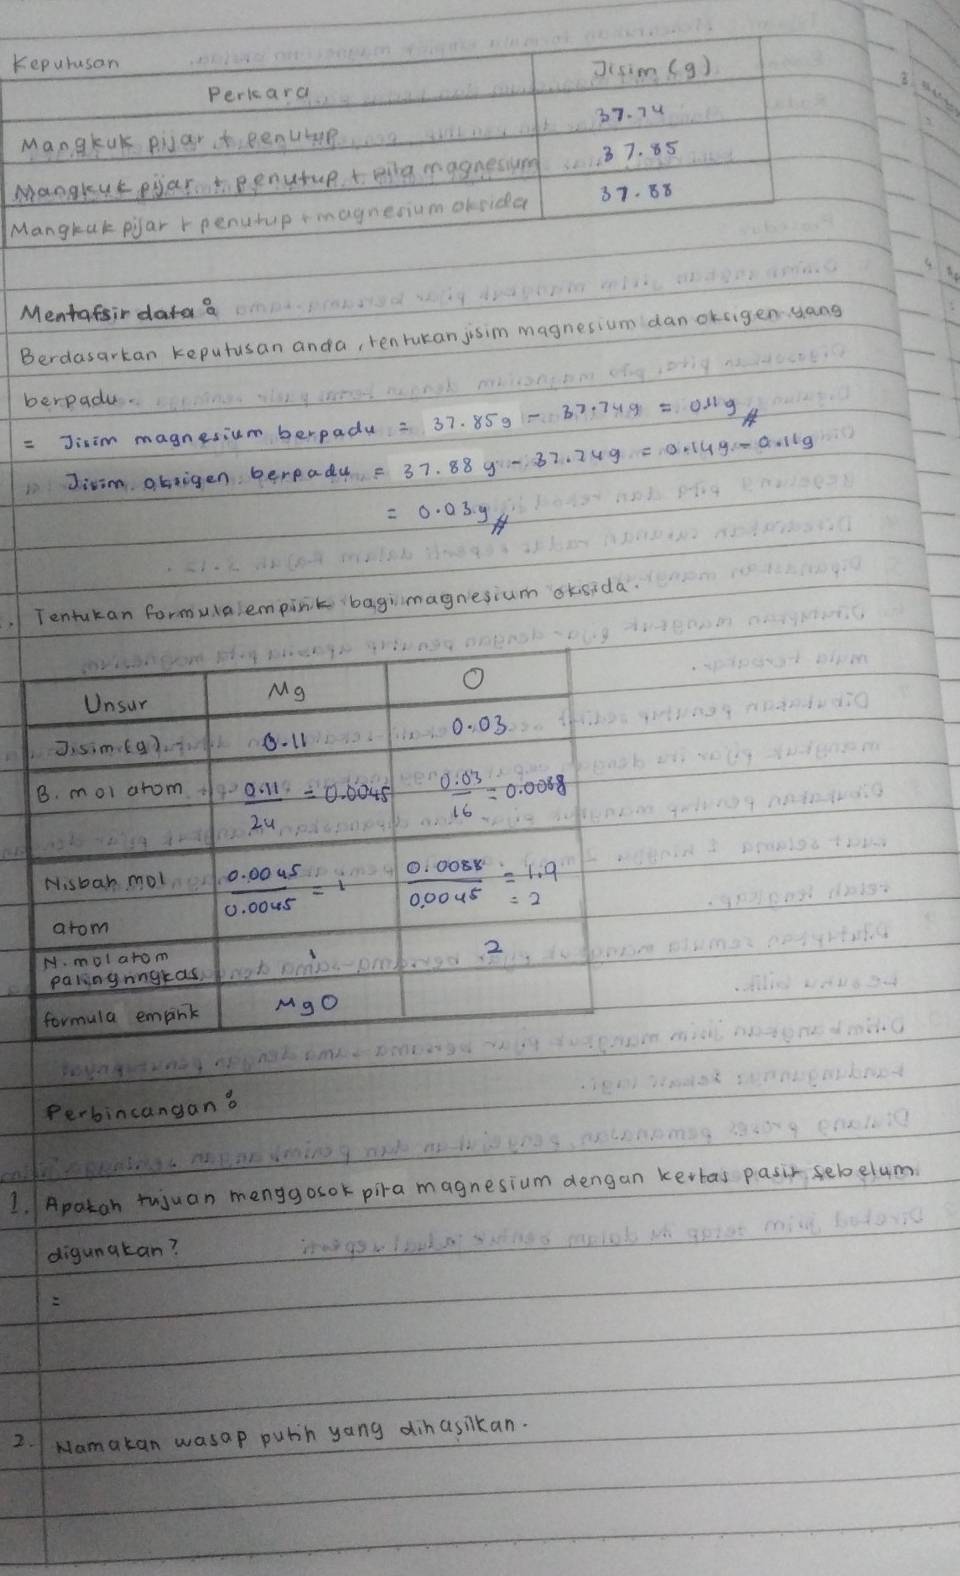 Keputusan
Perkara Jisim (g)
Mangkuk pijar + penutup 37.74
Mangkuk pijar + penutup + pita magnesium 37.85
Mangkuk pijar + penutup + magnesium oksida 37.88
Mentafsir data:
Berdasarkan keputusan anda, tentukan jisim magnesium dan oksigen yang
berpadu.
= Jisim magnesium berpadu = 37.85g - 37.74g = 0.11g #
Jisim oksigen berpadu = 37.88g - 37.74g = 0.14g - 0.11g
= 0.03g #
Tentukan formula empirik bagi magnesium oksida.
Unsur Mg O
Jisim (g) 0.11 0.03
B. mol atom 0.11/24 = 0.0045 0.03/16 = 0.0088
Nisbah mol 0.0045/0.0045 = 1 0.0088/0.0045 = 1.9
atom = 2
N. mol atom 1 2
paling ringkas
formula empirik MgO
Perbincangan:
1. Apakah tujuan menggosok pita magnesium dengan kertas pasir sebelum
digunakan?
=
2. Namakan wasap putih yang dihasilkan.